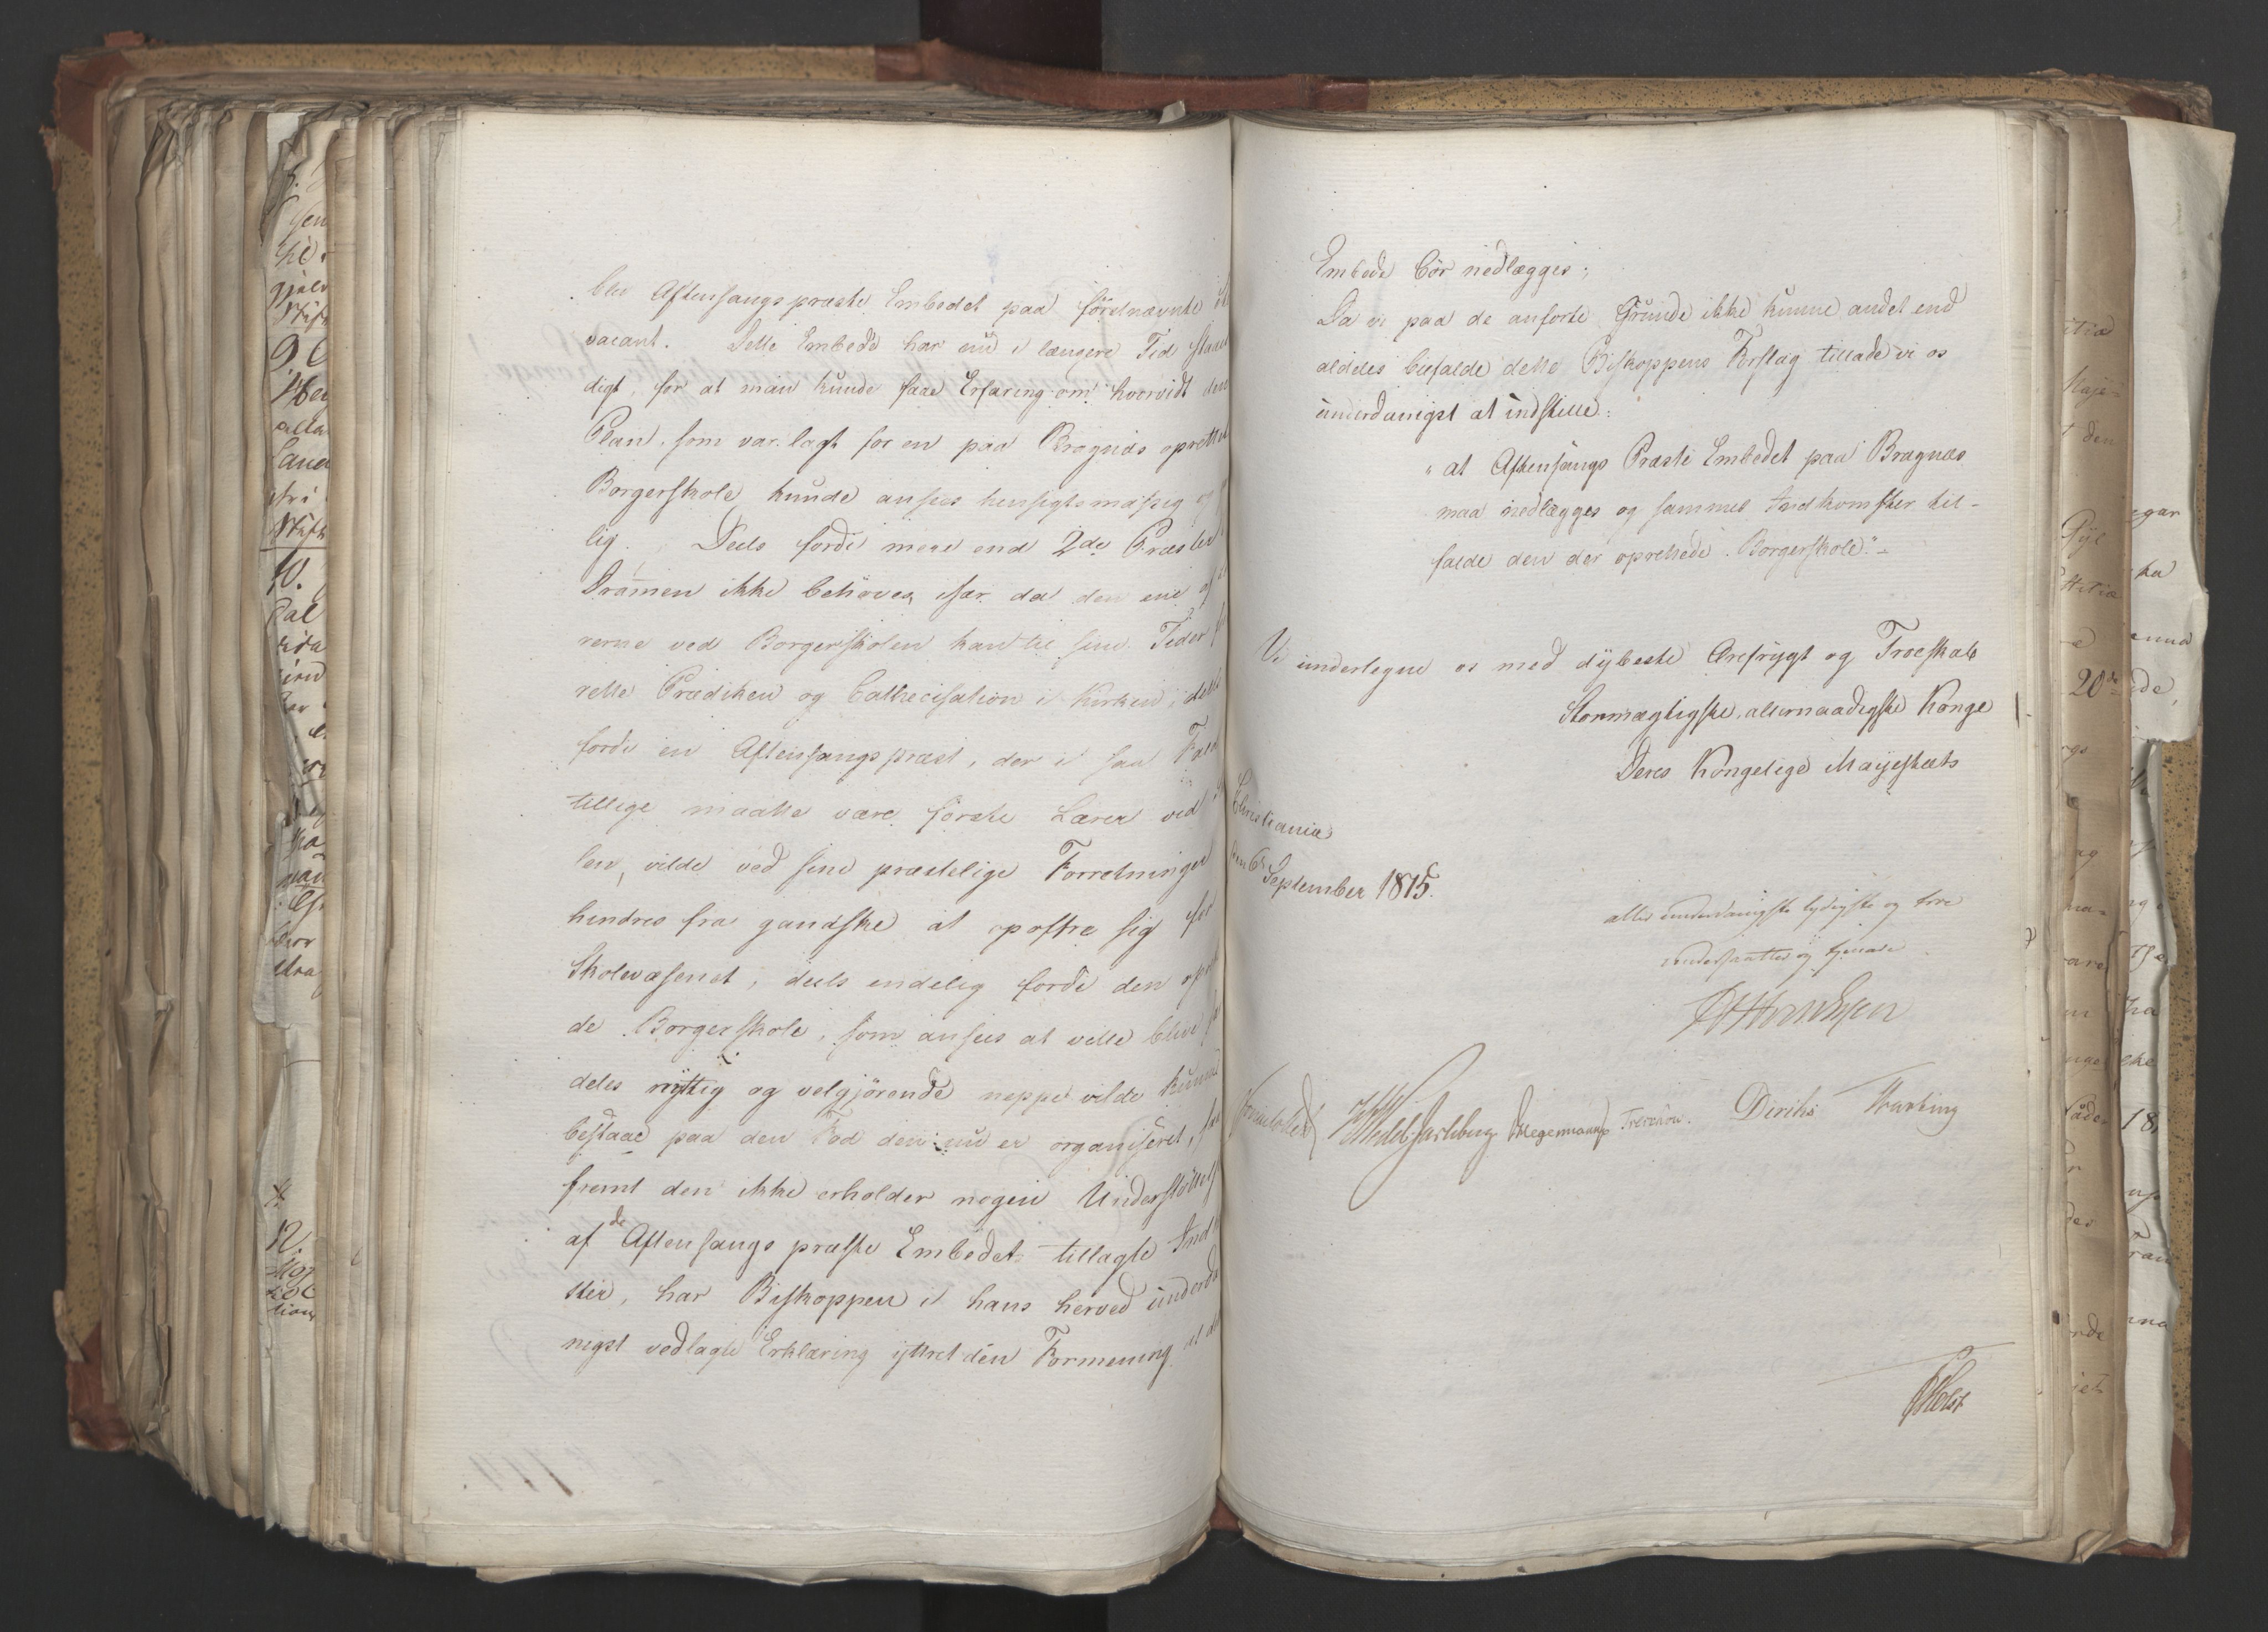 blev Aftensangspræste Embedet paa förstnævnte
vacant. Dette Embede har nu i længere Tid staaet
digt, for at man kunde faae Erfaring om hvorvidt den
Plan, som var lagt for en paa Bragnæs oprettet
Borgerskole, kunde ansees hensigtsmæssig og
lig. Deels fordi mere end 2de Præster
Dram̄en ikke behöves, især da den ene af
rerne ved Borgerskolen kan til sine Tider
rette Prædiken og Cathecisation i Kirken; deels
fordi en Aftensangspræst, der i saa Fald
tillige maatte være förste Lærer ved
len, vilde ved sine præstelige Forretninger
hindres fra gandske at opoffre sig for
Skolevæsenet, deels endelig fordi den
de Borgerskole, som ansees at ville blive
deles nyttig og velgjörende neppe vilde kunne
bestaae paa den Fod den nu er organiseret,
fremt den ikke erholder nogen Understöttelse
af de Aftensangs præste Embedet tillagte Ind
ster, har Biskoppen i hans herved underda
nigst vedlagte Erklæring yttret den Formening at
Embede bör nedlægges;
Da vi paa de anforte Grunde ikke kunne andet end
aldeles bifalde dette Biskoppens Forslag tillade vi os
underdanigst at indstille:
"at Aftensangs Præste Embedet paa Bragnæs
maa nedlægges og sammes Indkomster til-
falde den der oprettede Borgerskole."
Vi undertegne os med dÿbeste Ærefrÿgt og Troeskab
Stormægtigste, allernaadigste Konge
Deres Kongelige Mayestæts
Christiania
den 6t September 1815.
aller underdanigste lydigste og troe
undersaatter og tjenere
Wedel Jarlsberg Hegermann Treschow. Diriks
Holst